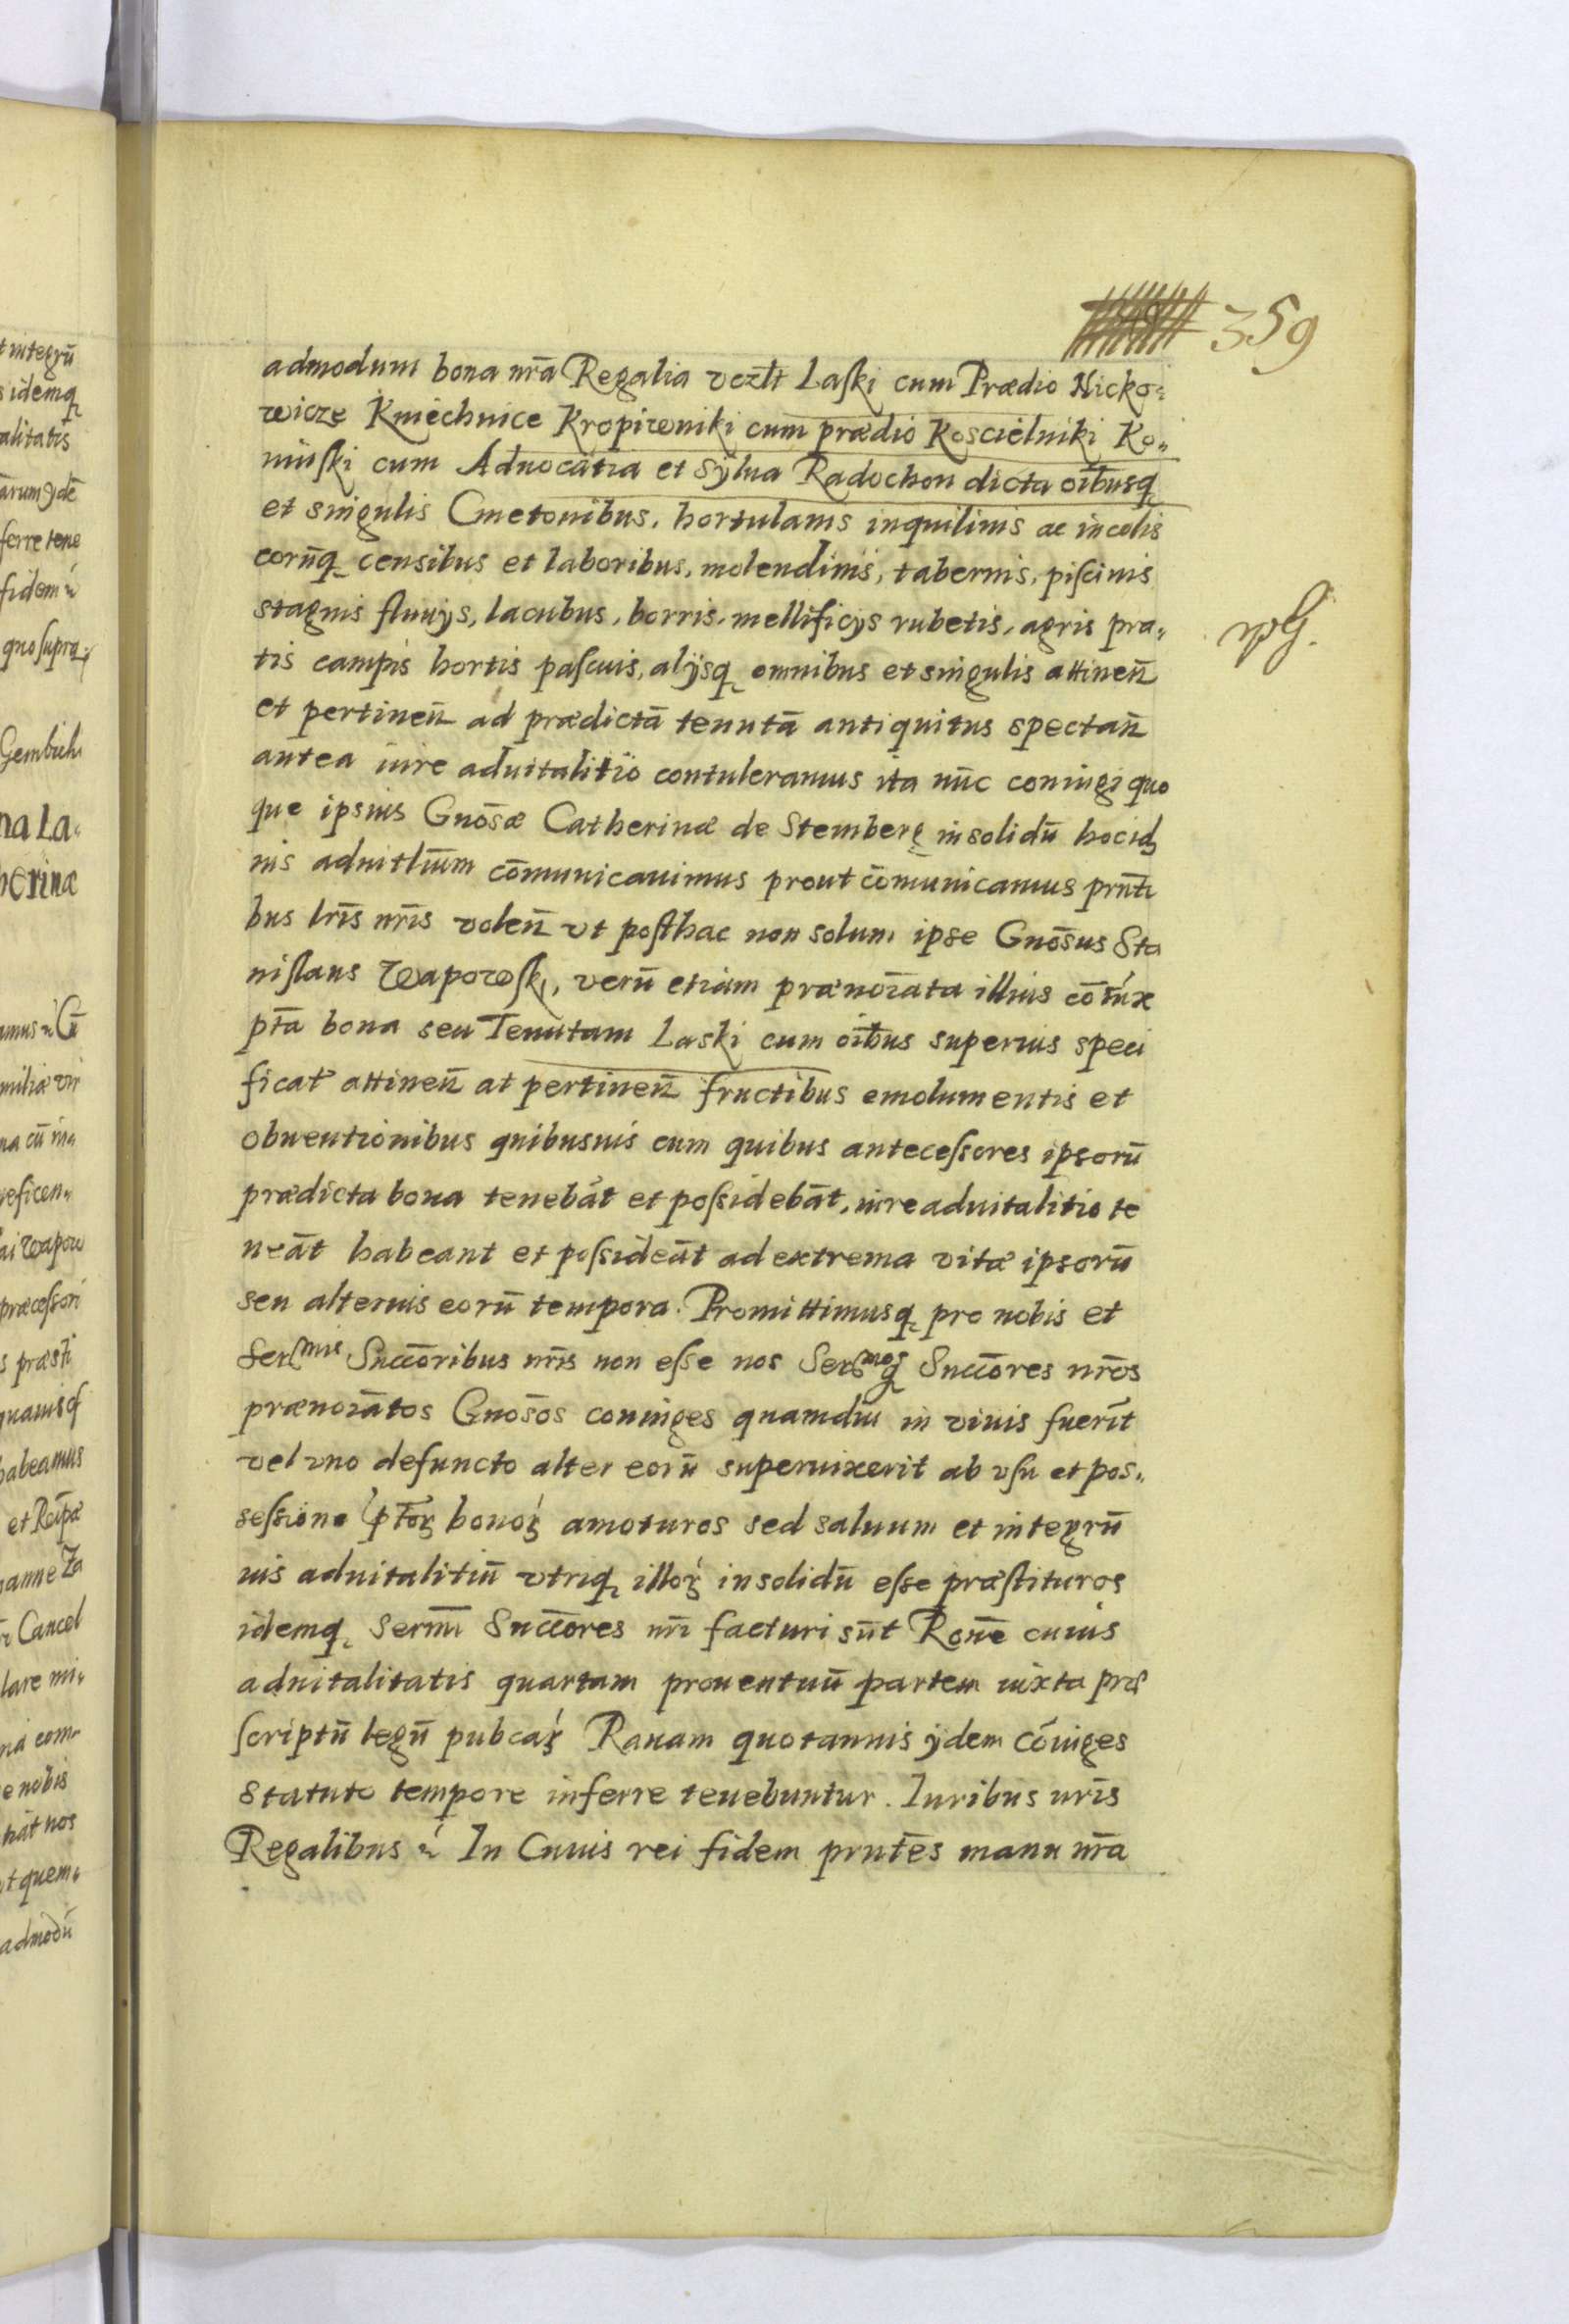 359
admodum bona nr̄a Regalia vczlt Laski cum Prædio Nicko„
wicze Kniechnice Kropiwniki cum prædio Koscielniki Ko„
niuski cum Aduocatia et sylua Radochon dicta oībusq,
et singulis Cmetonibus, hortulanis inquilinis ac incolis
eorūq, censibus et laboribus, molendinis, tabernis, piscinis
stagnis fluuijs, lacubus, borris, mellificijs rubetis, agris pra„
tis campis hortis pascuis, alijsq, omnibus et singulis attineñ
et pertineñ ad prædictā tenutā antiquitus spectañ
antea iure aduitalitio contuleramus ita nūc coniugi quo
que ipsius Gnōsæ Catherinæ de Stemberg insolidū hoc id
ius aduitlīum cōmunicauimus prout cōmunicamus prn̄ti
bus lrīs nrīs voleñ vt posthac non solum ipse Gnōsus Sta
nislaus Wapowski, verū etiam prænoīata illius cōiūx
ptā bona seu Tenutam Laski cum oībus superius speci
ficat attineñ at pertineñ fructibus emolumentis et
obuentionibus quibusuis cum quibus antecessores ipsorū
prædicta bona tenebāt et possidebāt, iure aduitalitio te
neāt habeant et possideāt ad extrema vitæ ipsorū
seu alterius eorū tempora. Promittimusq, pro nobis et
Serᵐⁱˢ Succōribus nrīs non esse nos Serᵐᵒˢq, Succōres nrōs
prænoīatos Gnōsos coniuges quamdiu in viuis fuerīt
vel vno defuncto alter eorū superuixerit ab vsu et pos„
sessione p̄toꝝ bonoꝝ amoturos sed saluum et integrū
ius aduitalitiū vtriq, illoꝝ insolidū esse præstituros
idemq, Sermī Succōres nrī facturi sūt Ronē cuius
aduitalitatis quartam prouentuū partem iuxta præ
scriptū legū pubcaꝝ Rauam quotannis ijdem cōiuges
statuto tempore inferre tenebuntur. Iuribus nrīs
Regalibus ɛ̃ In Cuius rei fidem prn̄tes manu nr̄a